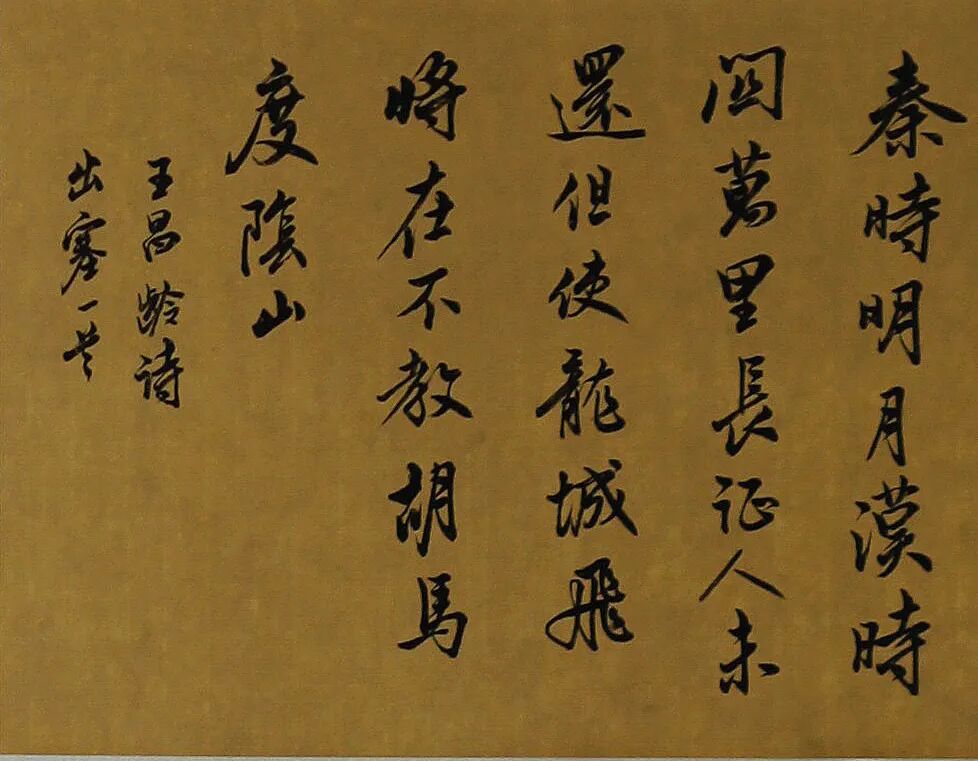 秦時明月漢時
關萬里長征人未
還但使龍城飛
將在不教胡馬
度陰山
王昌齡詩
出塞一首